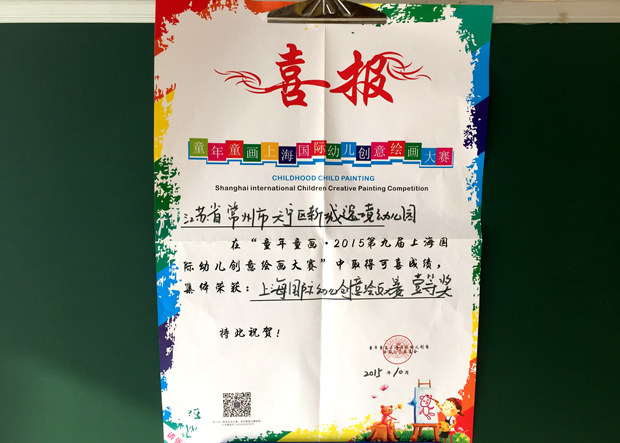 喜报
童年童画上海国际幼儿创意绘画大赛
CHILDHOOD CHILD PAINTING
Shanghai international Children Creative Painting Competition
江苏省常州市天宁区新城逸境幼儿园
在“童年童画·2015第九届上海国
际幼儿创意绘画大赛”中取得可喜成绩，
集体荣获：上海国际幼儿创意绘画大赛 壹等奖
特此祝贺！
2015年10月